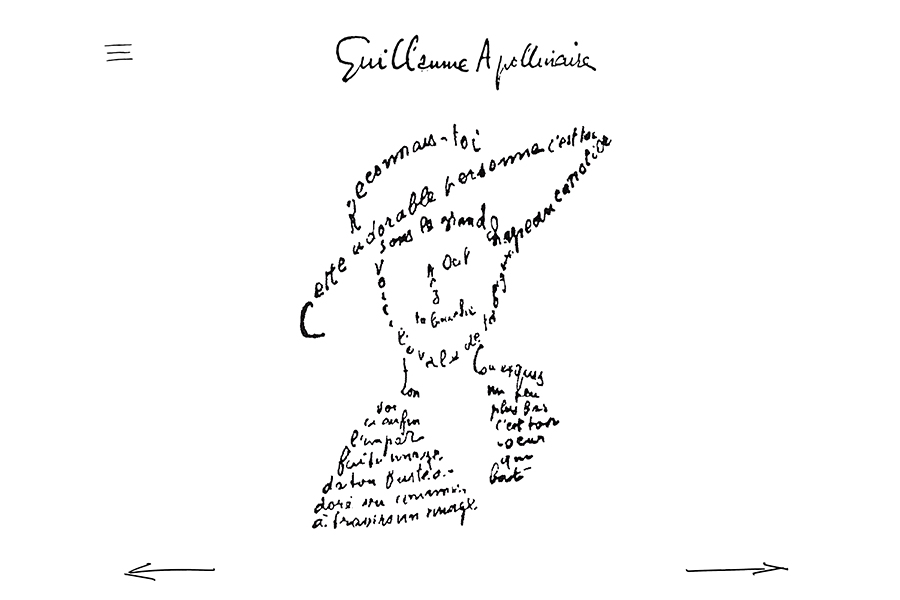 Guillaume Apollinaire
Reconnais-toi
Cette adorable personne c'est toi
sous le grand chapeau canotier
Oeil
Nez
ta bouche
Voici l'ovale de ta figure
ton
Voi
ci enfin
l'impar
faite image
de ton buste a
doré vu comme
à travers un nuage
un peu
plus bas
c'est ton
coeur
qui
bat